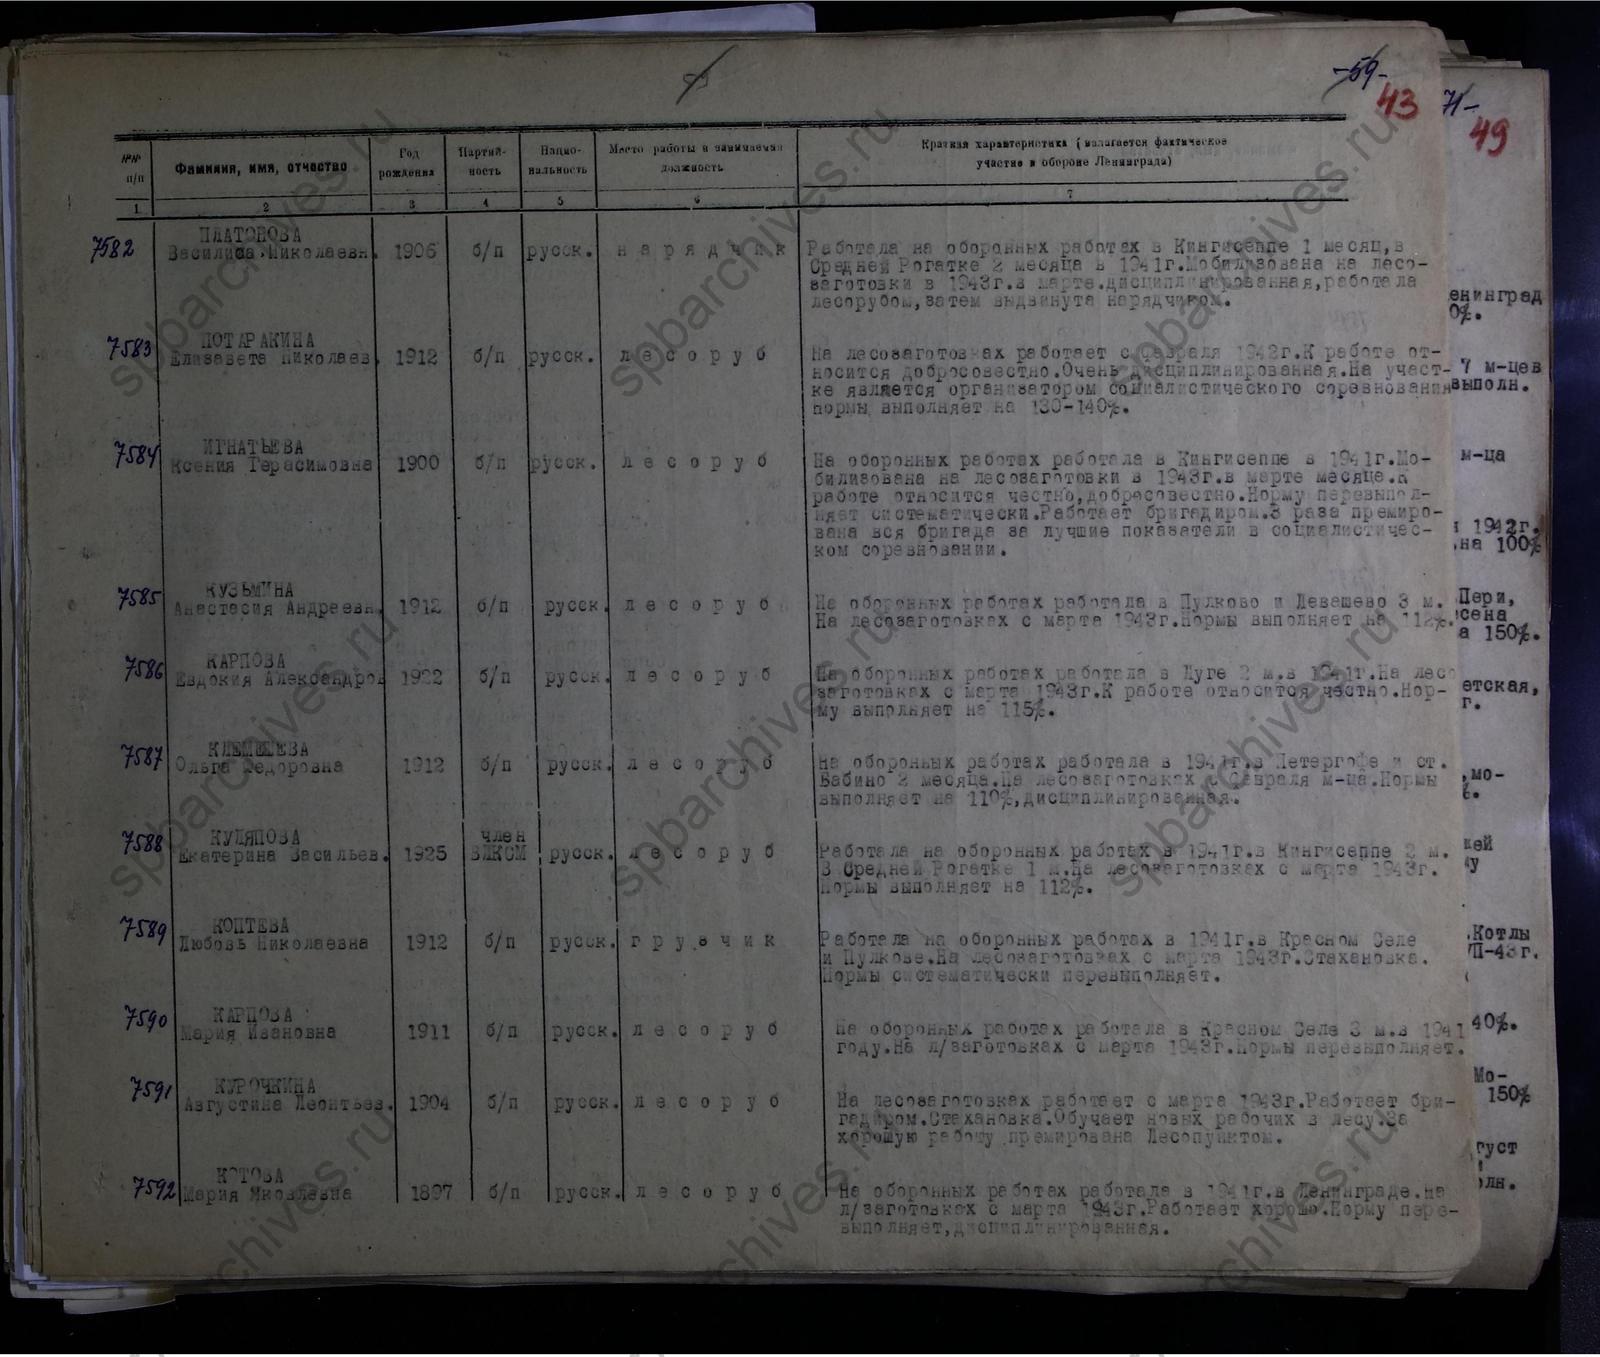 -59-
43
71-
49
№№ п/п
Фамилия, имя, отчество
Год рождения
Партий-ность
Нацио-нальность
Место работы и занимаемая должность
Краткая характеристика (излагается фактическое участие в обороне Ленинграда)
1 2 3 4 5 6 7
7582 ПЛАТОНОВА
Василиса Николаевн. 1906 б/п русск. нарядчик Работала на оборонных работах в Кингисеппе 1 месяц, в
Средней Рогатке 2 месяца в 1941г. Мобилизована на лесо-
заготовки в 1943г. в марте. дисциплинированная, работала
лесорубом, затем выдвинута нарядчиком.
7583 ПОТАРАКИНА
Елизавета Николаев. 1912 б/п русск. лесоруб На лесозаготовках работает с февраля 1942г. К работе от-
носится добросовестно. Очень дисциплинированная. На участ-
ке является организатором социалистического соревнования
нормы выполняет на 130-140%.
7584 ИГНАТЬЕВА
Ксения Герасимовна 1900 б/п русск. лесоруб На оборонных работах работала в Кингисеппе в 1941г. Мо-
билизована на лесозаготовки в 1943г. в марте месяце. К
работе относится честно, добросовестно. Норму перевыпол-
няет систематически. Работает бригадиром. 3 раза премиро-
вана вся бригада за лучшие показатели в социалистичес-
ком соревновании.
7585 КУЗЬМИНА
Анастасия Андреевн. 1912 б/п русск. лесоруб На оборонных работах работала в Пулково и Левашево 3 м.
На лесозаготовках с марта 1943г. Нормы выполняет на 112%.
7586 КАРПОВА
Евдокия Александров 1922 б/п русск. лесоруб На оборонных работах работала в Луге 2 м. в 1941г. На лесо
заготовках с марта 1943г. К работе относится честно. Нор-
му выполняет на 115%.
7587 КЛЕМЕШЕВА
Ольга Федоровна 1912 б/п русск. лесоруб На оборонных работах работала в 1941г. в Петергофе и ст.
Бабино 2 месяца. На лесозаготовках с февраля м-ца. Нормы
выполняет на 110%, дисциплинированная.
7588 КУЛЯПОВА член
Екатерина Васильев. 1925 ВЛКСМ русск. лесоруб Работала на оборонных работах в 1941г. в Кингисеппе 2 м.
В Средней Рогатке 1 м. На лесозаготовках с марта 1943г.
Нормы выполняет на 112%.
7589 КОПТЕВА
Любовь Николаевна 1912 б/п русск. грузчик Работала на оборонных работах в 1941г. в Красном Селе
и Пулкове. На лесозаготовках с марта 1943г. Стахановка.
Нормы систематически перевыполняет.
7590 КАРПОВА
Мария Ивановна 1911 б/п русск. лесоруб На оборонных работах работала в Красном Селе 3 м. в 1941
году. На л/заготовках с марта 1943г. Нормы перевыполняет.
7591 КУРОЧКИНА
Августина Леонтьев. 1904 б/п русск. лесоруб На лесозаготовках работает с марта 1943г. Работает бри-
гадиром. Стахановка. Обучает новых рабочих в лесу. За
хорошую работу премирована Лесопунктом.
7592 КОТОВА
Мария Яковлевна 1897 б/п русск. лесоруб На оборонных работах работала в 1941г. в Ленинграде. На
л/заготовках с марта 1943г. Работает хорошо. Норму пере-
выполняет, дисциплинированная.
енинград
0%.
7 м-цев
выполн.
м-ца
1942г.
на 100%
Пери,
сена
а 150%.
етская,
г.
мо-
%.
шей
му
Котлы
УП-43г.
40%.
Мо-
150%
густ
олн.
spbarchives.ru